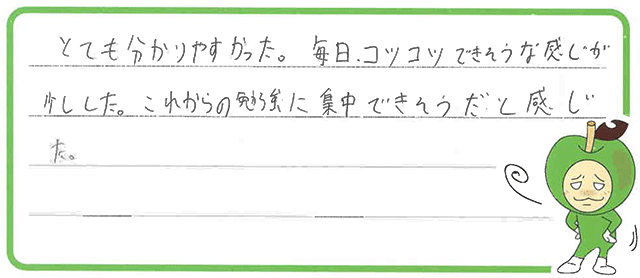 とても分かりやすかった。毎日、コツコツできそうな感じが
少しした。これからの勉強に集中できそうだと感じ
た。